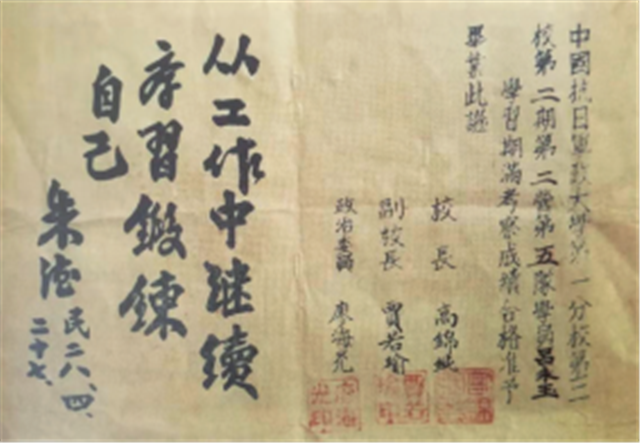 中國抗日軍政大學第一分校第三
校第二期第二營第五隊學員呂
學習期滿考察成績合格准予
畢業此證
校長 高錦純
副校長 賈若瑜
政治委員 廖海光
从工作中继續
学習鍛鍊
自己
朱德 民二八、四、
二十七、